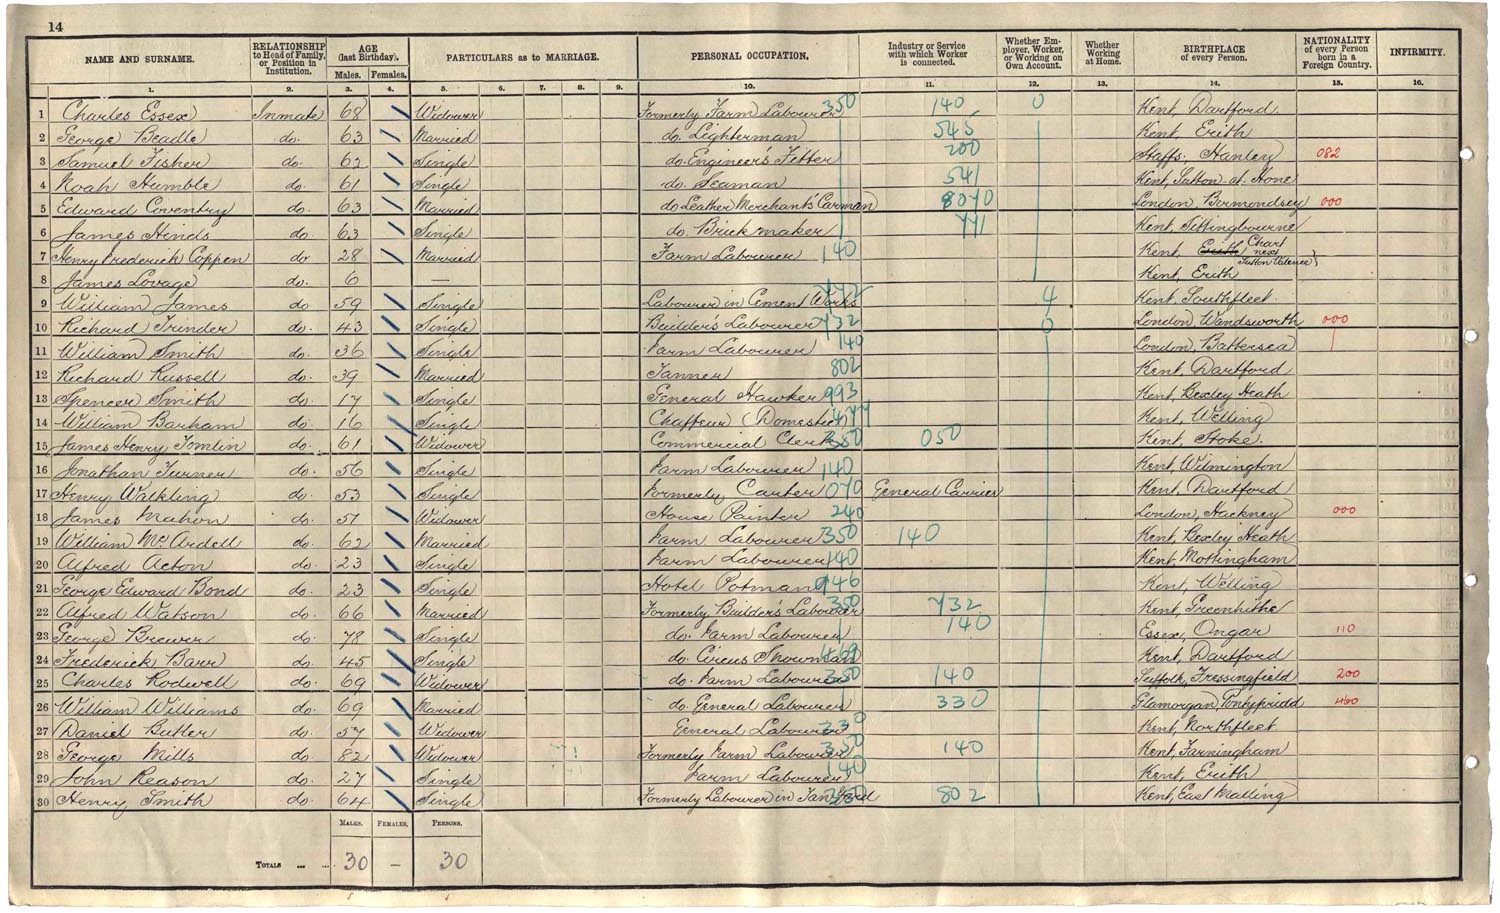 14
NAME AND SURNAME. RELATIONSHIP to Head of Family, or Position in Institution. AGE (last Birthday). Males. Females. PARTICULARS as to MARRIAGE. PERSONAL OCCUPATION. Industry or Service with which Worker is connected. Whether Employer, Worker, or Working on Own Account. Whether Working at Home. BIRTHPLACE of every Person. NATIONALITY of every Person born in a Foreign Country. INFIRMITY.
1. 2. 3. 4. 5. 6. 7. 8. 9. 10. 11. 12. 13. 14. 15. 16.
1 Charles Essex Inmate 68 Widower Formerly Farm Labourer 350 140 0 Kent, Dartford
2 George Beadle do. 63 Married do. Lighterman 545 Kent, Erith
3 Samuel Fisher do. 62 Single do. Engineer's Fitter 200 Staffs, Hanley 082
4 Noah Humble do. 61 Single do. Seaman 541 Kent, Sutton-at-Hone
5 Edward Coventry do. 63 Married do Leather Merchant's Carman 8070 London, Bermondsey 000
6 James Hinds do. 63 Single do. Brick maker 771 Kent, Sittingbourne
7 Henry Frederick Coppen do 28 Married Farm Labourer 140 Kent, Erith Chart next Sutton Valence
8 James Lovage do. 6 — Kent, Erith
9 William James do 59 Single Labourer in Cement Works 4 Kent, Southfleet
10 Richard Trinder do. 43 Single Builder's Labourer 732 0 London, Wandsworth 000
11 William Smith do. 36 Single Farm Labourer 140 London, Battersea
12 Richard Russell do. 39 Married Tanner 802 Kent, Dartford
13 Spencer Smith do. 17 Single General Hawker 993 Kent, Bexley Heath
14 William Barham do. 16 Single Chaffeur (Domestic) 477 Kent, Welling
15 James Henry Tomlin do. 61 Widower Commercial Clerk 350 050 Kent, Stoke.
16 Jonathan Turner do. 56 Single Farm Labourer 140 Kent, Wilmington
17 Henry Walkling do. 53 Single Formerly Carter 070 General Carrier Kent, Dartford
18 James Mahon do. 51 Widower House Painter 240 London, Hackney 000
19 William McArdell do. 62 Married Farm Labourer 350 140 Kent, Bexley Heath
20 Alfred Acton do. 23 Single Farm Labourer 140 Kent, Mottingham
21 George Edward Bond do. 23 Single Hotel Potman 946 Kent, Welling
22 Alfred Watson do. 66 Married Formerly Builder's Labourer 350 732 Kent, Greenhithe
23 George Brewer do. 78 Single do. Farm Labourer 140 Essex, Ongar 110
24 Frederick Barr do. 45 Single do. Circus Showman Kent, Dartford
25 Charles Rodwell do. 69 Widower do. Farm Labourer 350 140 Suffolk, Fressingfield 200
26 William Williams do. 69 Married do. General Labourer 330 Glamorgan, Pontypridd 460
27 Daniel Butler do. 57 Widower General Labourer 330 Kent, Northfleet
28 George Mills do. 82 Widower Formerly Farm Labourer 350 140 Kent, Farningham
29 John Reason do. 27 Single Farm Labourer 140 Kent, Erith
30 Henry Smith do. 64 Single Formerly Labourer in Tan Yard 350 802 Kent, East Malling
Males. Females. Persons.
Totals ... ... 30 – 30